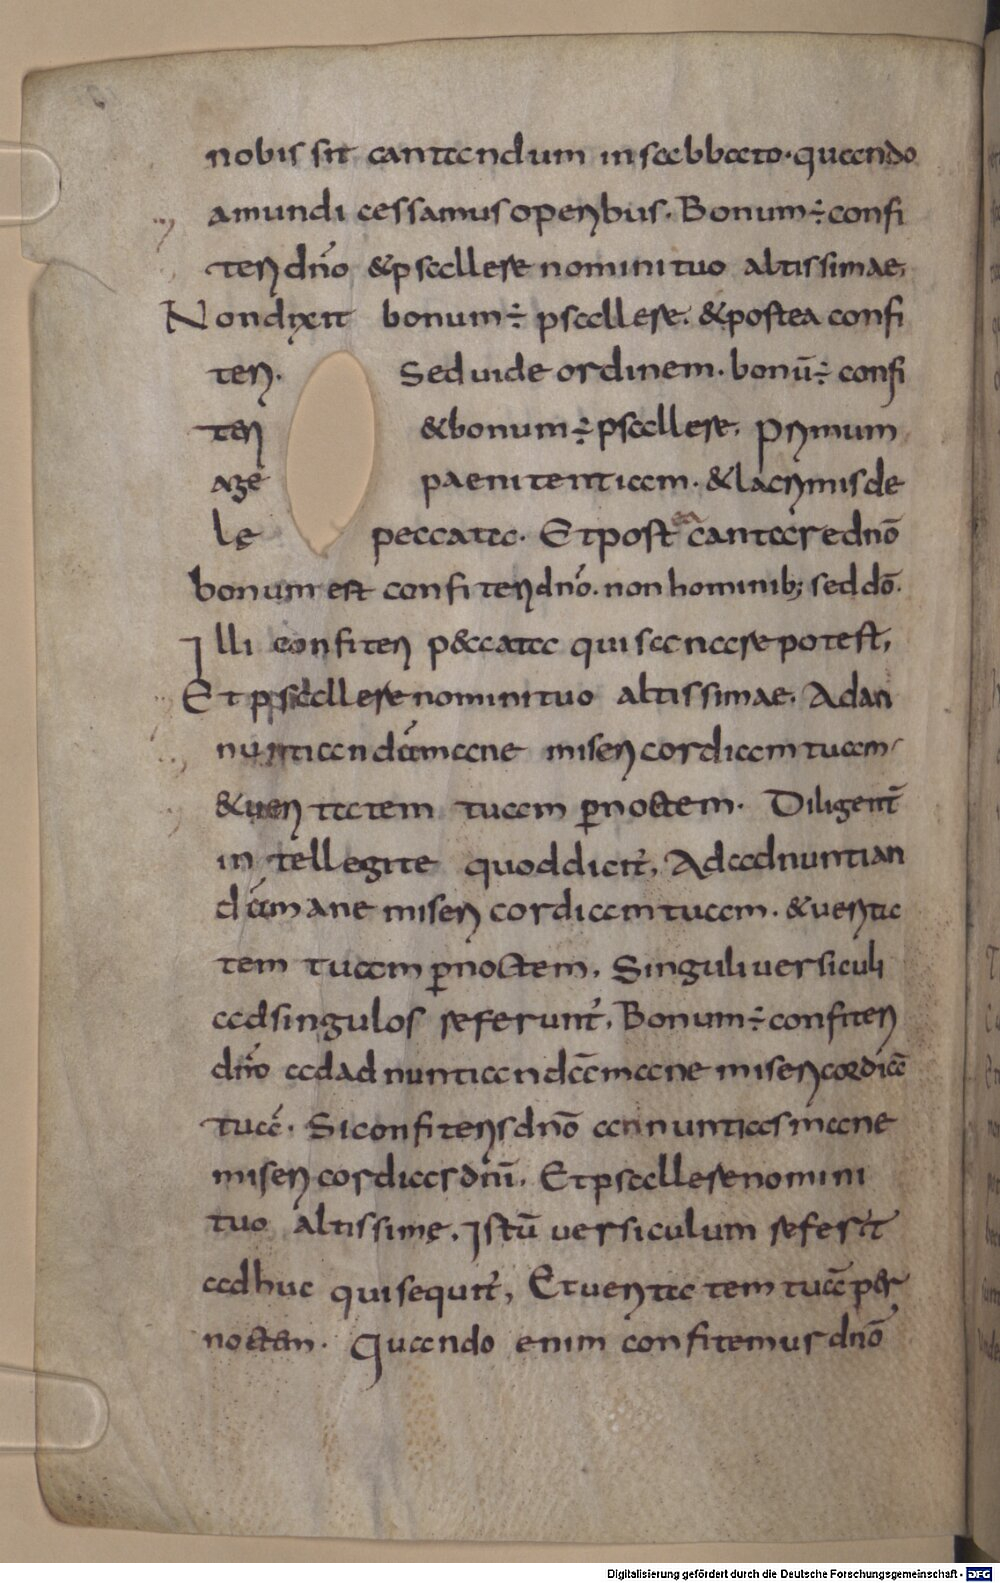 nobis sit cantandum in sabbato. quando
a mundi cessamus operibus. Bonum ÷ confi
teri dño & psallere nomini tuo altissimae,
Non dixit bonum ÷ psallere. & postea confi
teri. Sed uide ordinem. bonū ÷ confi
teri & bonum ÷ psallere, Primum
age paenitentiam. & lacrimis de
le peccata. Et post ea cantare dnō
bonum est confiteri dño. non hominib; sed dō.
Illi confiteri peccata qui sanare potest,
Et psallere nomini tuo altissimae. Adan
nuntiandā mane misericordiam tuam
& ueritatem tuam p noctem. Diligent̄
intellegite quod dicit, Ad adnuntian
dā mane misericordiam tuam. & uerita
tem tuam p noctem, Singuli uersiculi
ad singulos referunt, Bonum ÷ confiteri
dño ad adnuntiandā mane misericordiā
tuā. Si confiteris dnō annuntias mane
misericordias dñi. Et psallere nomini
tuo altissimę. Istū uersiculum referit
adhuc qui sequit, Et ueritatem tuā per
noctem. Quando enim confitemur dnō
Digitalisierung gefördert durch die Deutsche Forschungsgemeinschaft - DFG